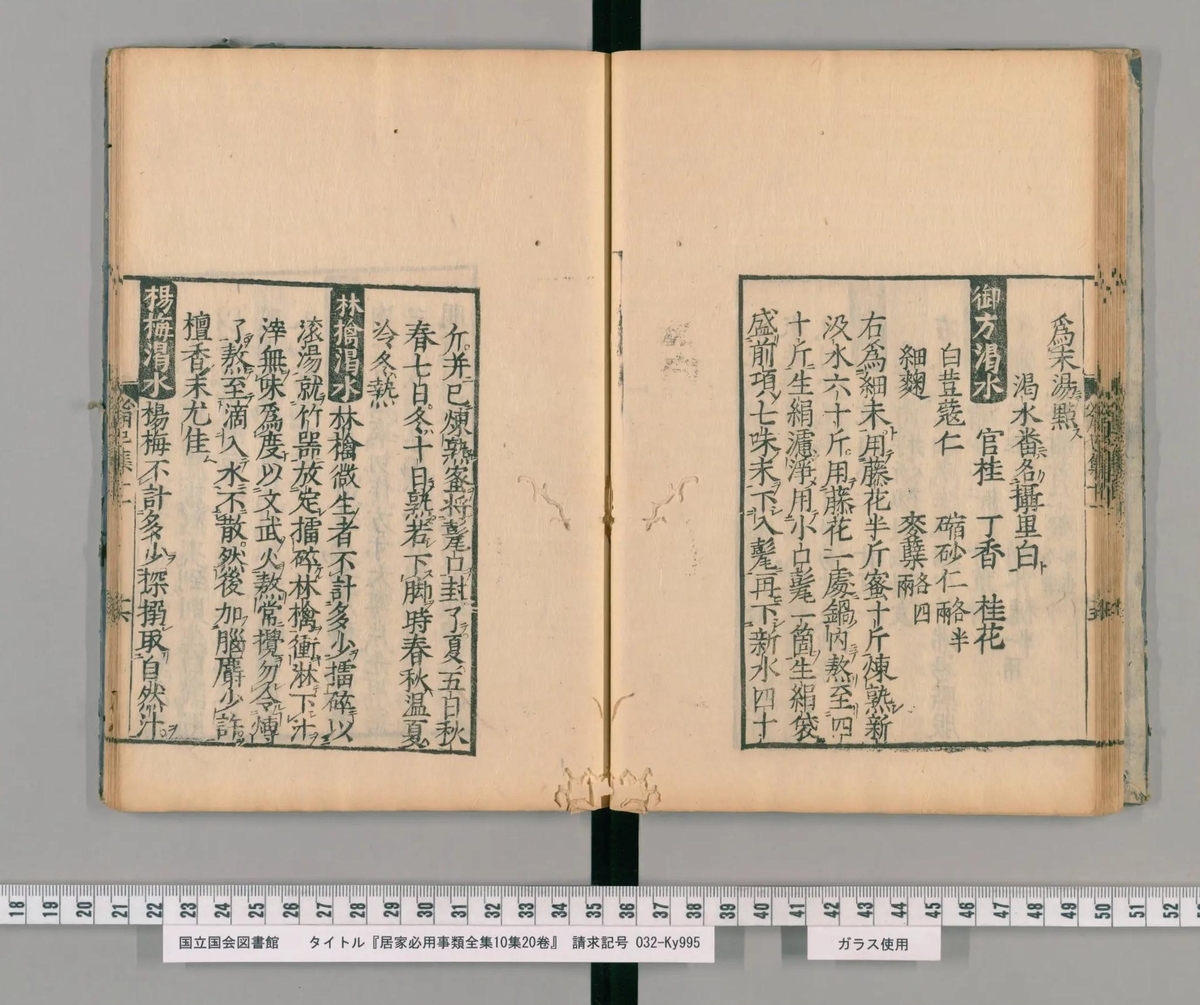 為末湯點ス
渇水番名攝里白ト
御方渇水 官桂 丁香 桂花
白荳蔲仁 縮砂仁各半兩
細麴 麥蘖各四兩
右為細末用藤花半斤蜜十斤煉熟新
汲水六十斤用藤花一處鍋內熬至四
十斤生絹濾淨用小口甏一箇生絹袋
盛前項七味末下入甏再下新水四十
斤并已煉熟蜜将甏口封了夏五日秋
春七日冬十日熟若下脚時春秋温夏
冷冬熱
林檎渇水 林檎微生者不計多少擂碎以
滚湯就竹器放定擂碎林檎衝淋下汁
滓無味為度以文武火熬常攪勿令煿
了熬至滴入水不散然後加腦麝少許
檀香末尤佳
楊梅渇水 楊梅不計多少探搦取自然汁
国立国会図書館 タイトル『居家必用事類全集10集20巻』 請求記号 032-Ky995
ガラス使用
18 19 20 21 22 23 24 25 26 27 28 29 30 31 32 33 34 35 36 37 38 39 40 41 42 43 44 45 46 47 48 49 50 51 52